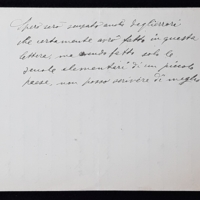 Spero sarò scusato anche degli errori
che certamente avrò fatto in questa
lettera, ma avendo fatto solo le
scuole elementari di un piccolo
paese, non posso scrivere di meglio